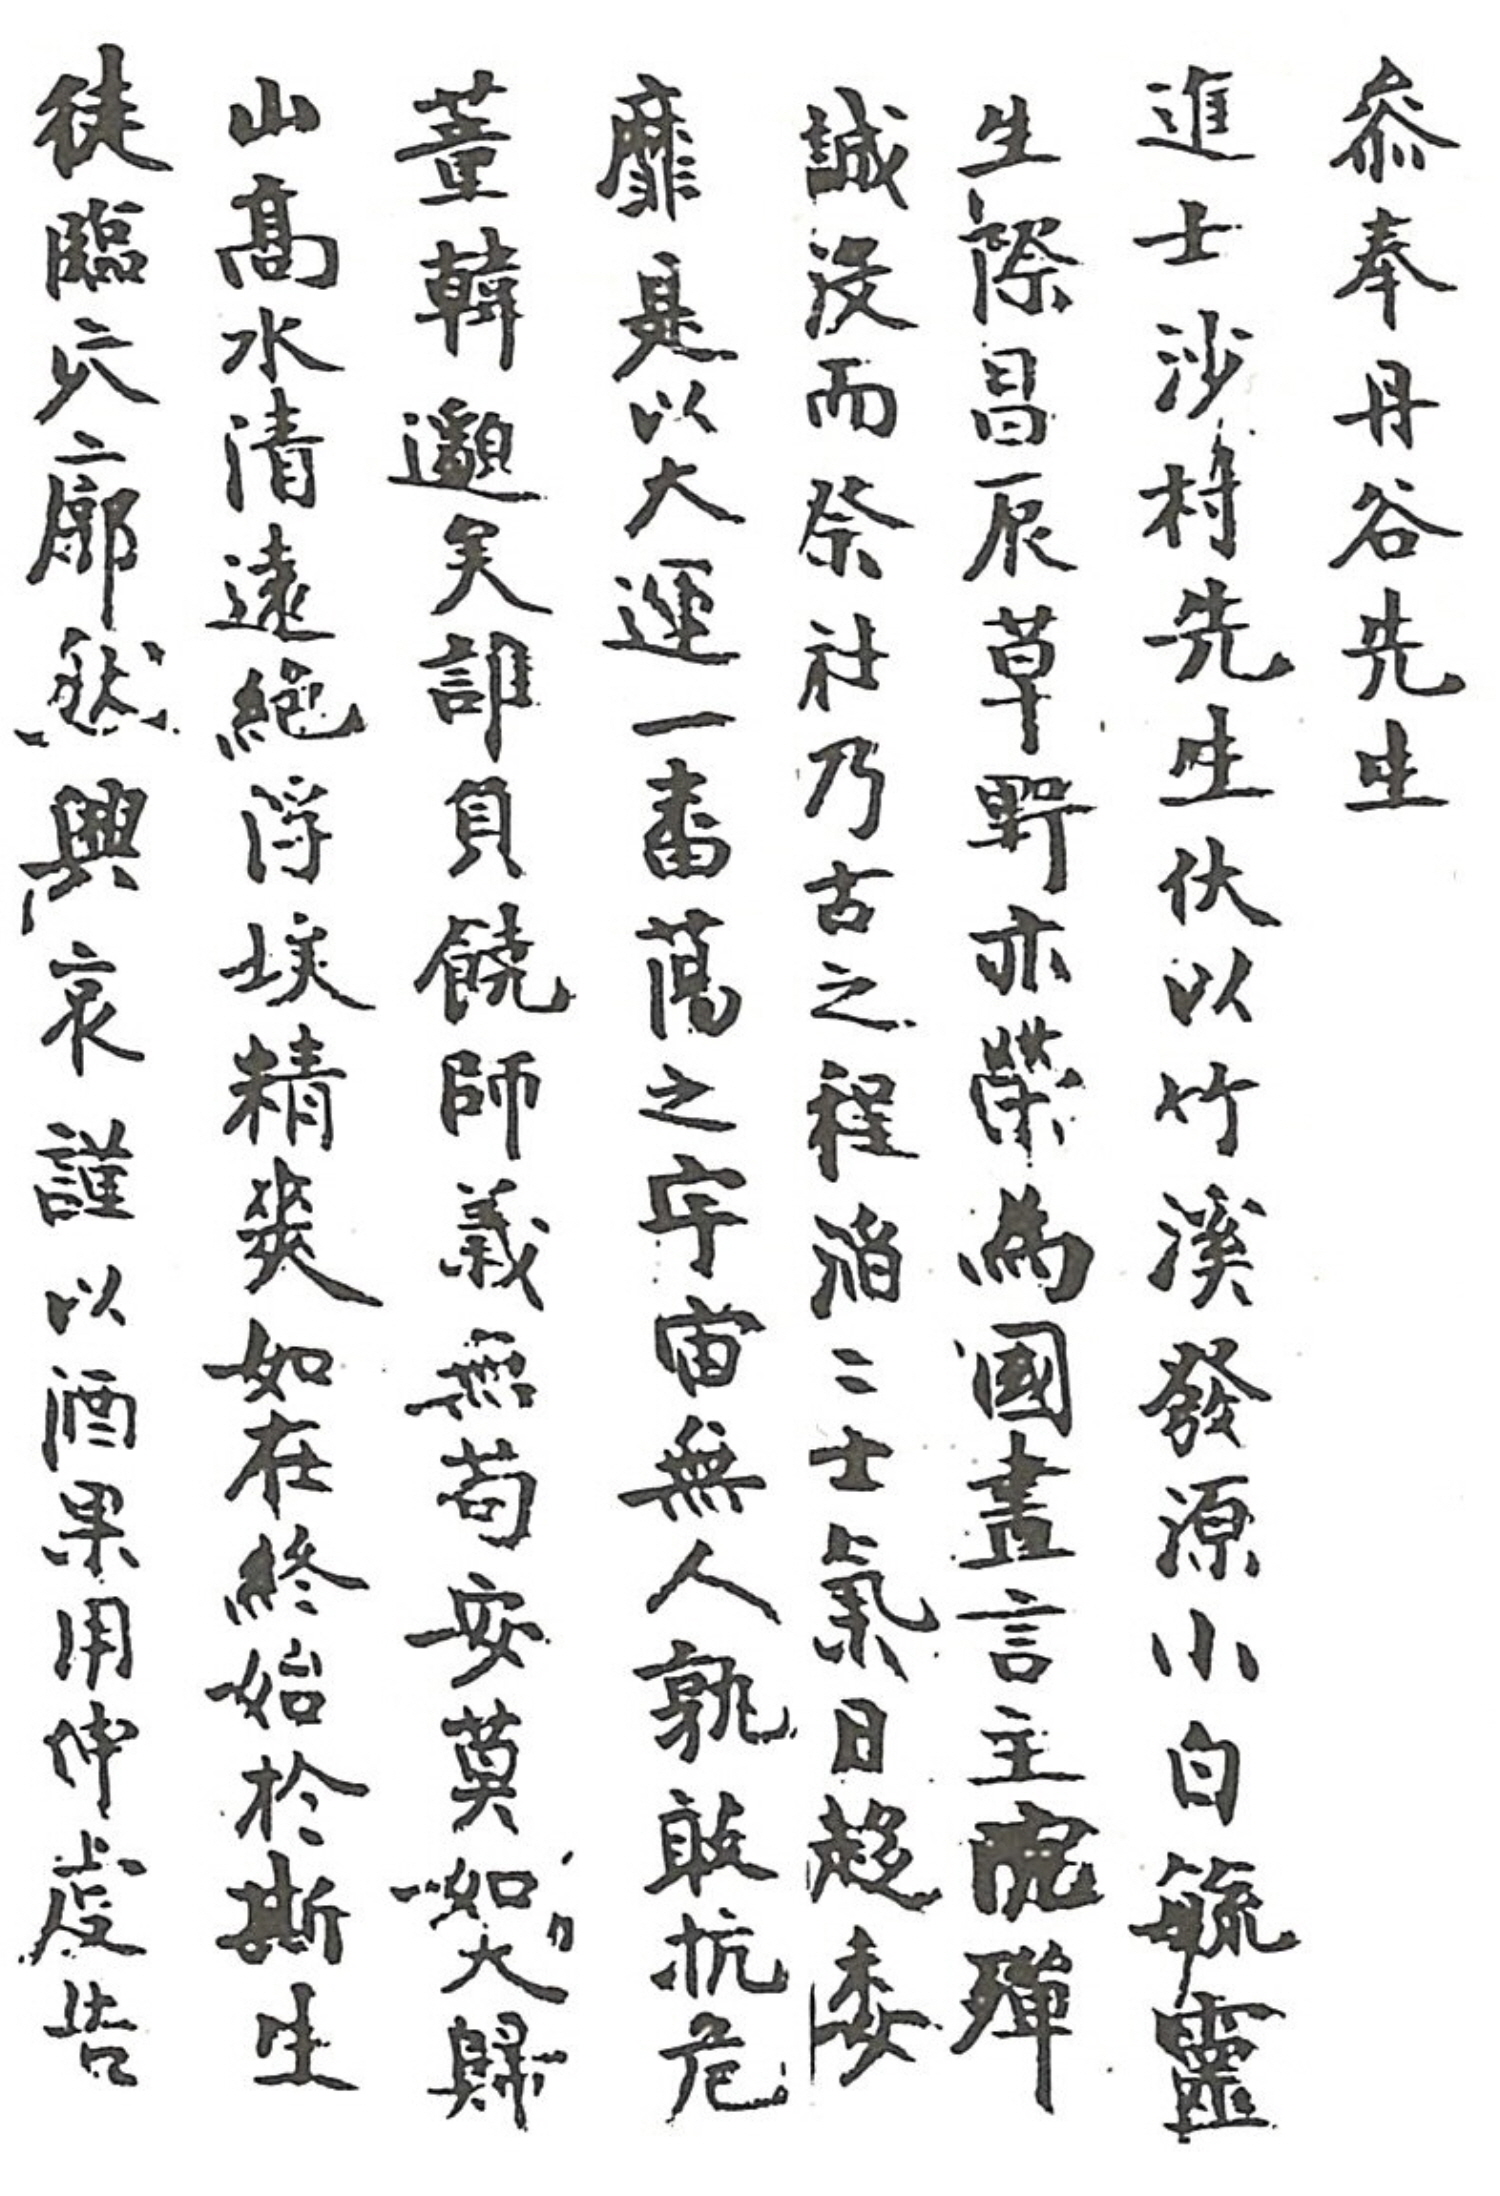 叅奉丹谷先生
進士沙村先生伏以竹溪發源小白毓靈
生際昌辰草野亦榮為國盡言主寃殫
誠沒而祭社乃古之程猗二士氣日趍委
靡是以大運一畨蕩之宇宙無人孰敢抗危
董韓邈矣誰負饒師義無苟安莫如大歸
山髙水清遠絶浮埃精爽如在終始於斯生
徒臨穴廓然興哀謹以酒果用伸虔告